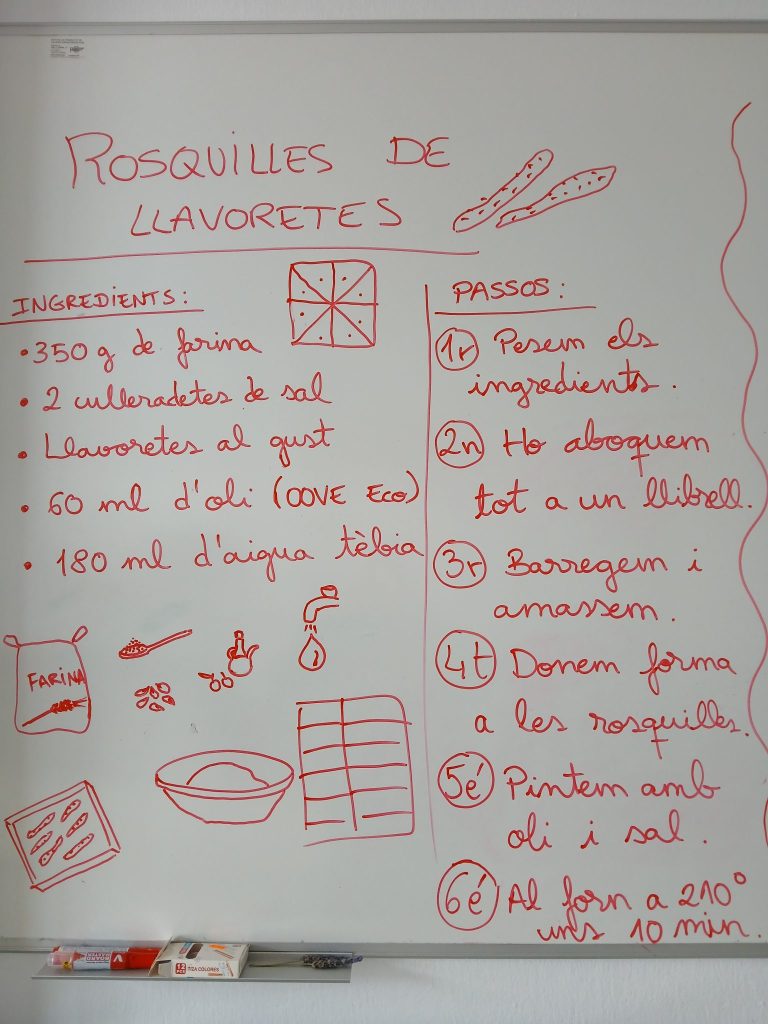 ROSQUILLES DE
LLAVORETES
INGREDIENTS:
• 350 g de farina
• 2 culleradetes de sal
• Llavoretes al gust
• 60 ml d'oli (OOVE Eco)
• 180 ml d'aigua tèbia
FARINA
PASSOS:
1r Pesem els
ingredients.
2n Ho aboquem
tot a un llibrell.
3r Barregem i
amassem.
4t Donem forma
a les rosquilles.
5é Pintem amb
oli i sal.
6é Al forn a 210°
uns 10 min.
TIZA COLORES